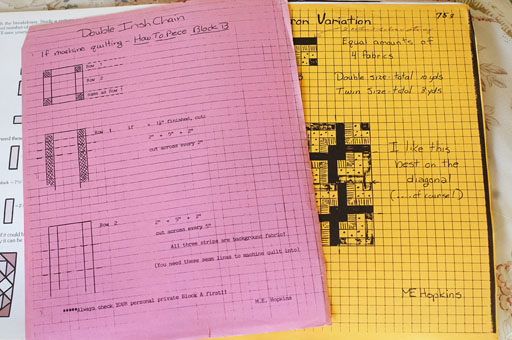 Double Irish Chain
If machine quilting - How To Piece Block B
Row 1
Row 2
same as Row 1
Row 1 If = 1½" finished, cut:
2" + 5" + 2"
cut across every 2"
Row 2 2" + 5" + 2"
cut across every 5"
All three strips are background fabric
(You need these seam lines to machine quilt into)
*****Always check YOUR personal private Block A first!!
M.E. Hopkins
ron Variation
75¢
Equal amounts of
4 fabrics
Double size-total 10 yds
Twin Size-total 8 yds
I like this
best on the
diagonal
(....of course!)
ME Hopkins